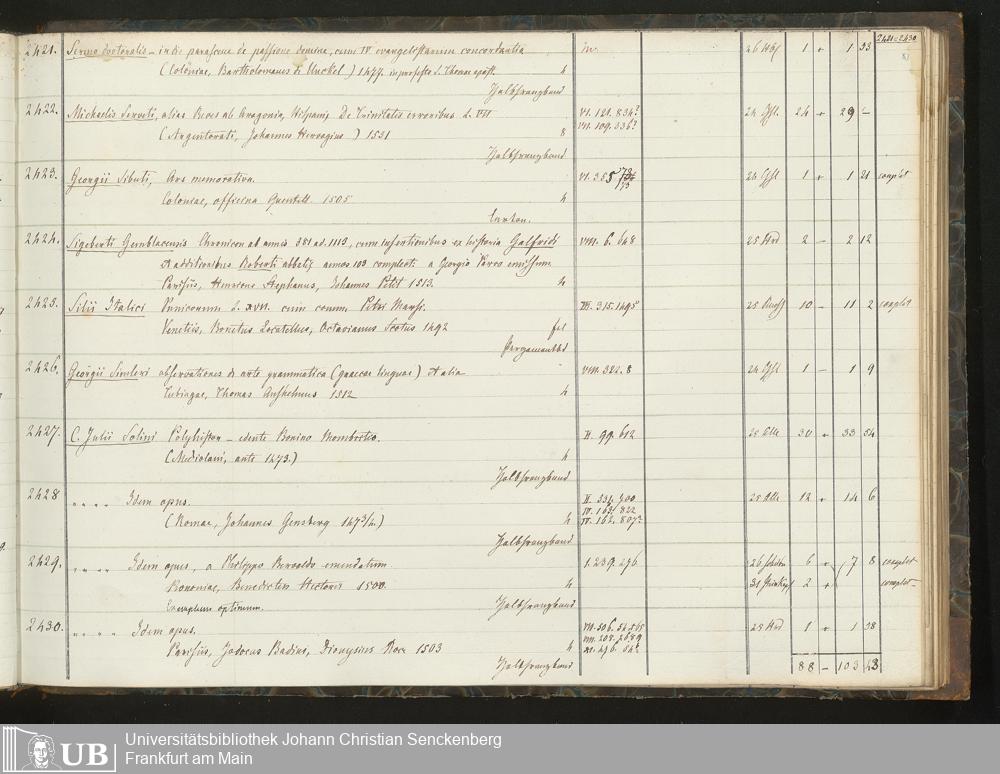 2421=2430
2421. Sermo doctoralis – in die parasceue de passione domini, cum IV evangelistarum concordantia in. 26 1 1 33
(Coloniae, Bartholomaeus de Unckel) 1477. in profesto S. Thomae apost. 4
Halbfranzband
2422. Michaelis Serveti, alias Reves ab Arragonia, Hispani De Trinitatis erroribus l. VII VI. 121. 834 24 24 29 –
(Argentorati, Johannes Hervagius) 1531 8 VII. 109. 336
Halbfranzband
2423. Georgii Sibuti, Ars memorativa. VI. 355 24 1 1 21 complet
Coloniae, officina Quentell. 1505 4
Carton.
2424. Sigeberti Gemblacensis Chronicon ab anno 381 ad. 1113, cum insertionibus ex historia Galfridi VIII. 6. 648 25 2 – 2 12
Et additionibus Roberti abbatis annos 103 complect. a Georgio Parvo emissum
Parisiis, Henricus Stephanus, Johannes Petit 1513. 4
2425. Silii Italici Punicorum l. XVII. cum comm. Petri Marsi. III. 315. 1495 25 10 – 11 2 complet
Venetiis, Bonetus Locatellus, Octavianus Scotus 1492 fol
Pergamentbd
2426. Georgii Simleri observationes de arte grammatica (graecae linguae) et alia VIII. 322. 8 24 1 – 1 9
Tubingae, Thomas Anshelmus 1512 4
2427. C. Julii Solini Polyhistor – edente Bonino Mombritio. II. 99. 612 25 30 33 54
(Mediolani, ante 1473.) 4
Halbfranzband
2428 " " " " Idem opus. II. 334. 700 25 12 14 6
(Romae, Johannes Gensberg 1473/4.) 4 IV. 163. 822
IV. 162. 807
Halbfranzband
2429. " " " " Idem opus, a Philippo Beroaldo emendatum 1. 239. 296 26 6 7 8 complet
Bononiae, Benedictus Hectoris 1500. 4 31 2 complet –
Exemplum optimum. Halbfranzband
2430. " " " " Idem opus. VII. 506. 54. 565 25 1 1 38
VIII. 208. 2689
Parisiis, Jodocus Badius, Dionysius Roce 1503 4 XI. 496. 64
Halbfranzband 88 – 103 43
UB Universitätsbibliothek Johann Christian Senckenberg
Frankfurt am Main